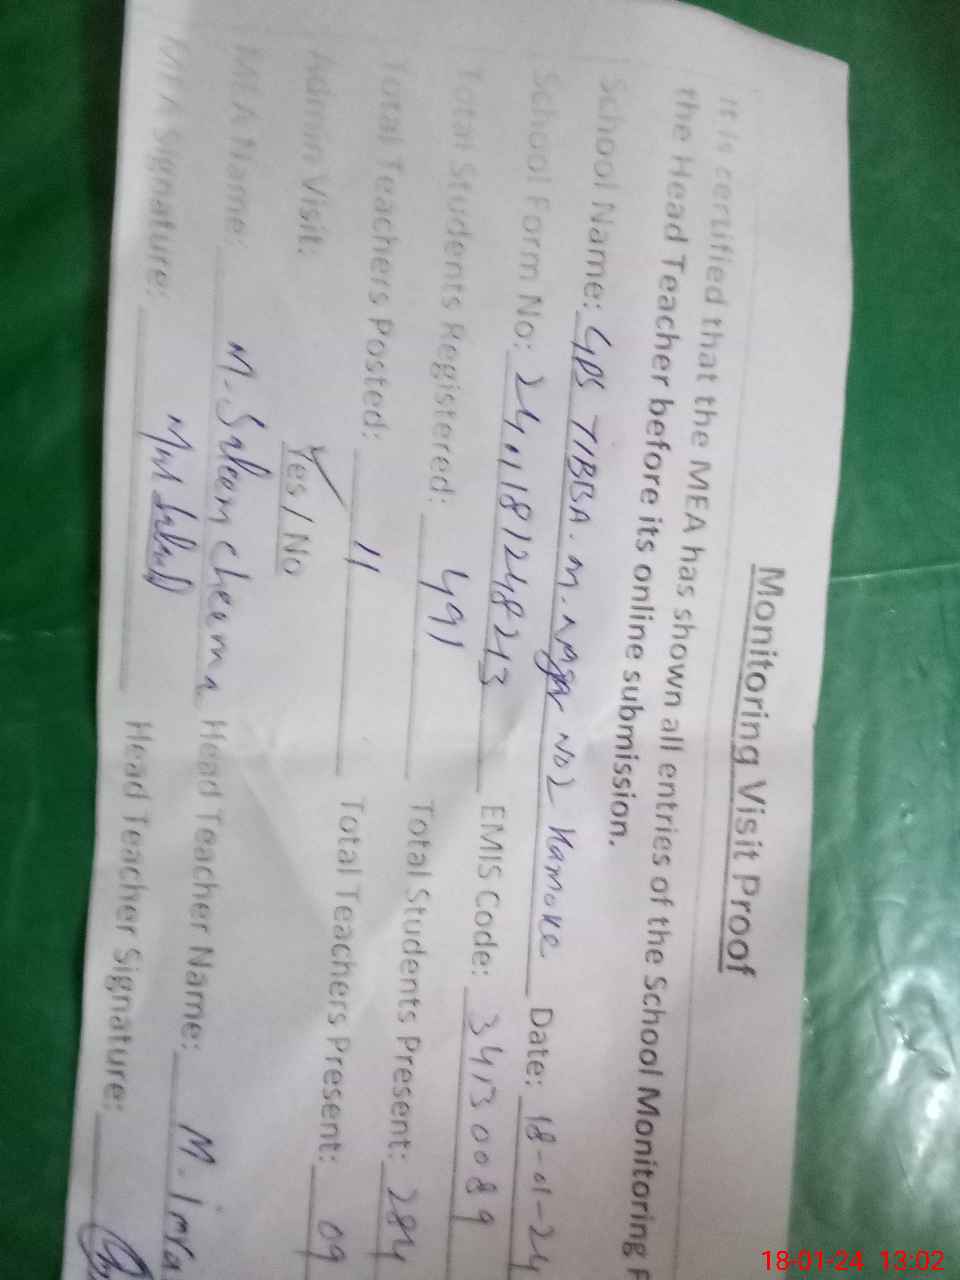 Monitoring Visit Proof
It is certified that the MEA has shown all entries of the School Monitoring F
the Head Teacher before its online submission.
School Name: GPS TIBBA. M. Nagar No2 Kamoke Date: 18-01-24
School Form No: EMIS Code: 34130089
Total Students Registered: 491 Total Students Present: 284
Total Teachers Posted: 11 Total Teachers Present: 09
Admin Visit: Yes / No
MEA Name: M. Saleem cheema Head Teacher Name: M. Imra
MEA Signature: Head Teacher Signature:
18-01-24 13:02